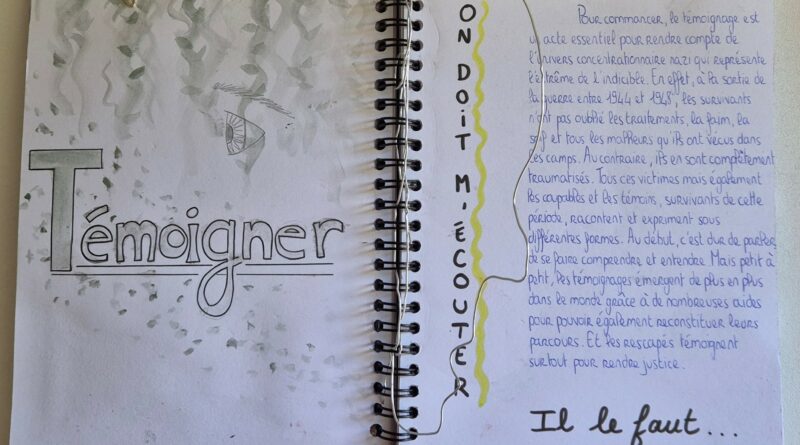 Témoigner
ON DOIT M'ÉCOUTER
Pour commencer, le témoignage est
un acte essentiel pour rendre compte de
l'univers concentrationnaire nazi qui représente
l'extrême de l'indicible. En effet, à la sortie de
la guerre entre 1944 et 1945, les survivants
n'ont pas oublié les traitements, la faim, la
soif et tous les malheurs qu'ils ont vécus dans
les camps. Au contraire, ils en sont complètement
traumatisés. Tous ces victimes mais également
les coupables et les témoins, survivants de cette
période, racontent et expriment sous
différentes formes. Au début, c'est dur de parler,
de se faire comprendre et entendre. Mais petit à
petit, les témoignages émergent de plus en plus
dans le monde grâce à de nombreuses aides
pour pouvoir également reconstituer leurs
parcours. Et les rescapés témoignent
surtout pour rendre justice.
Il le faut...